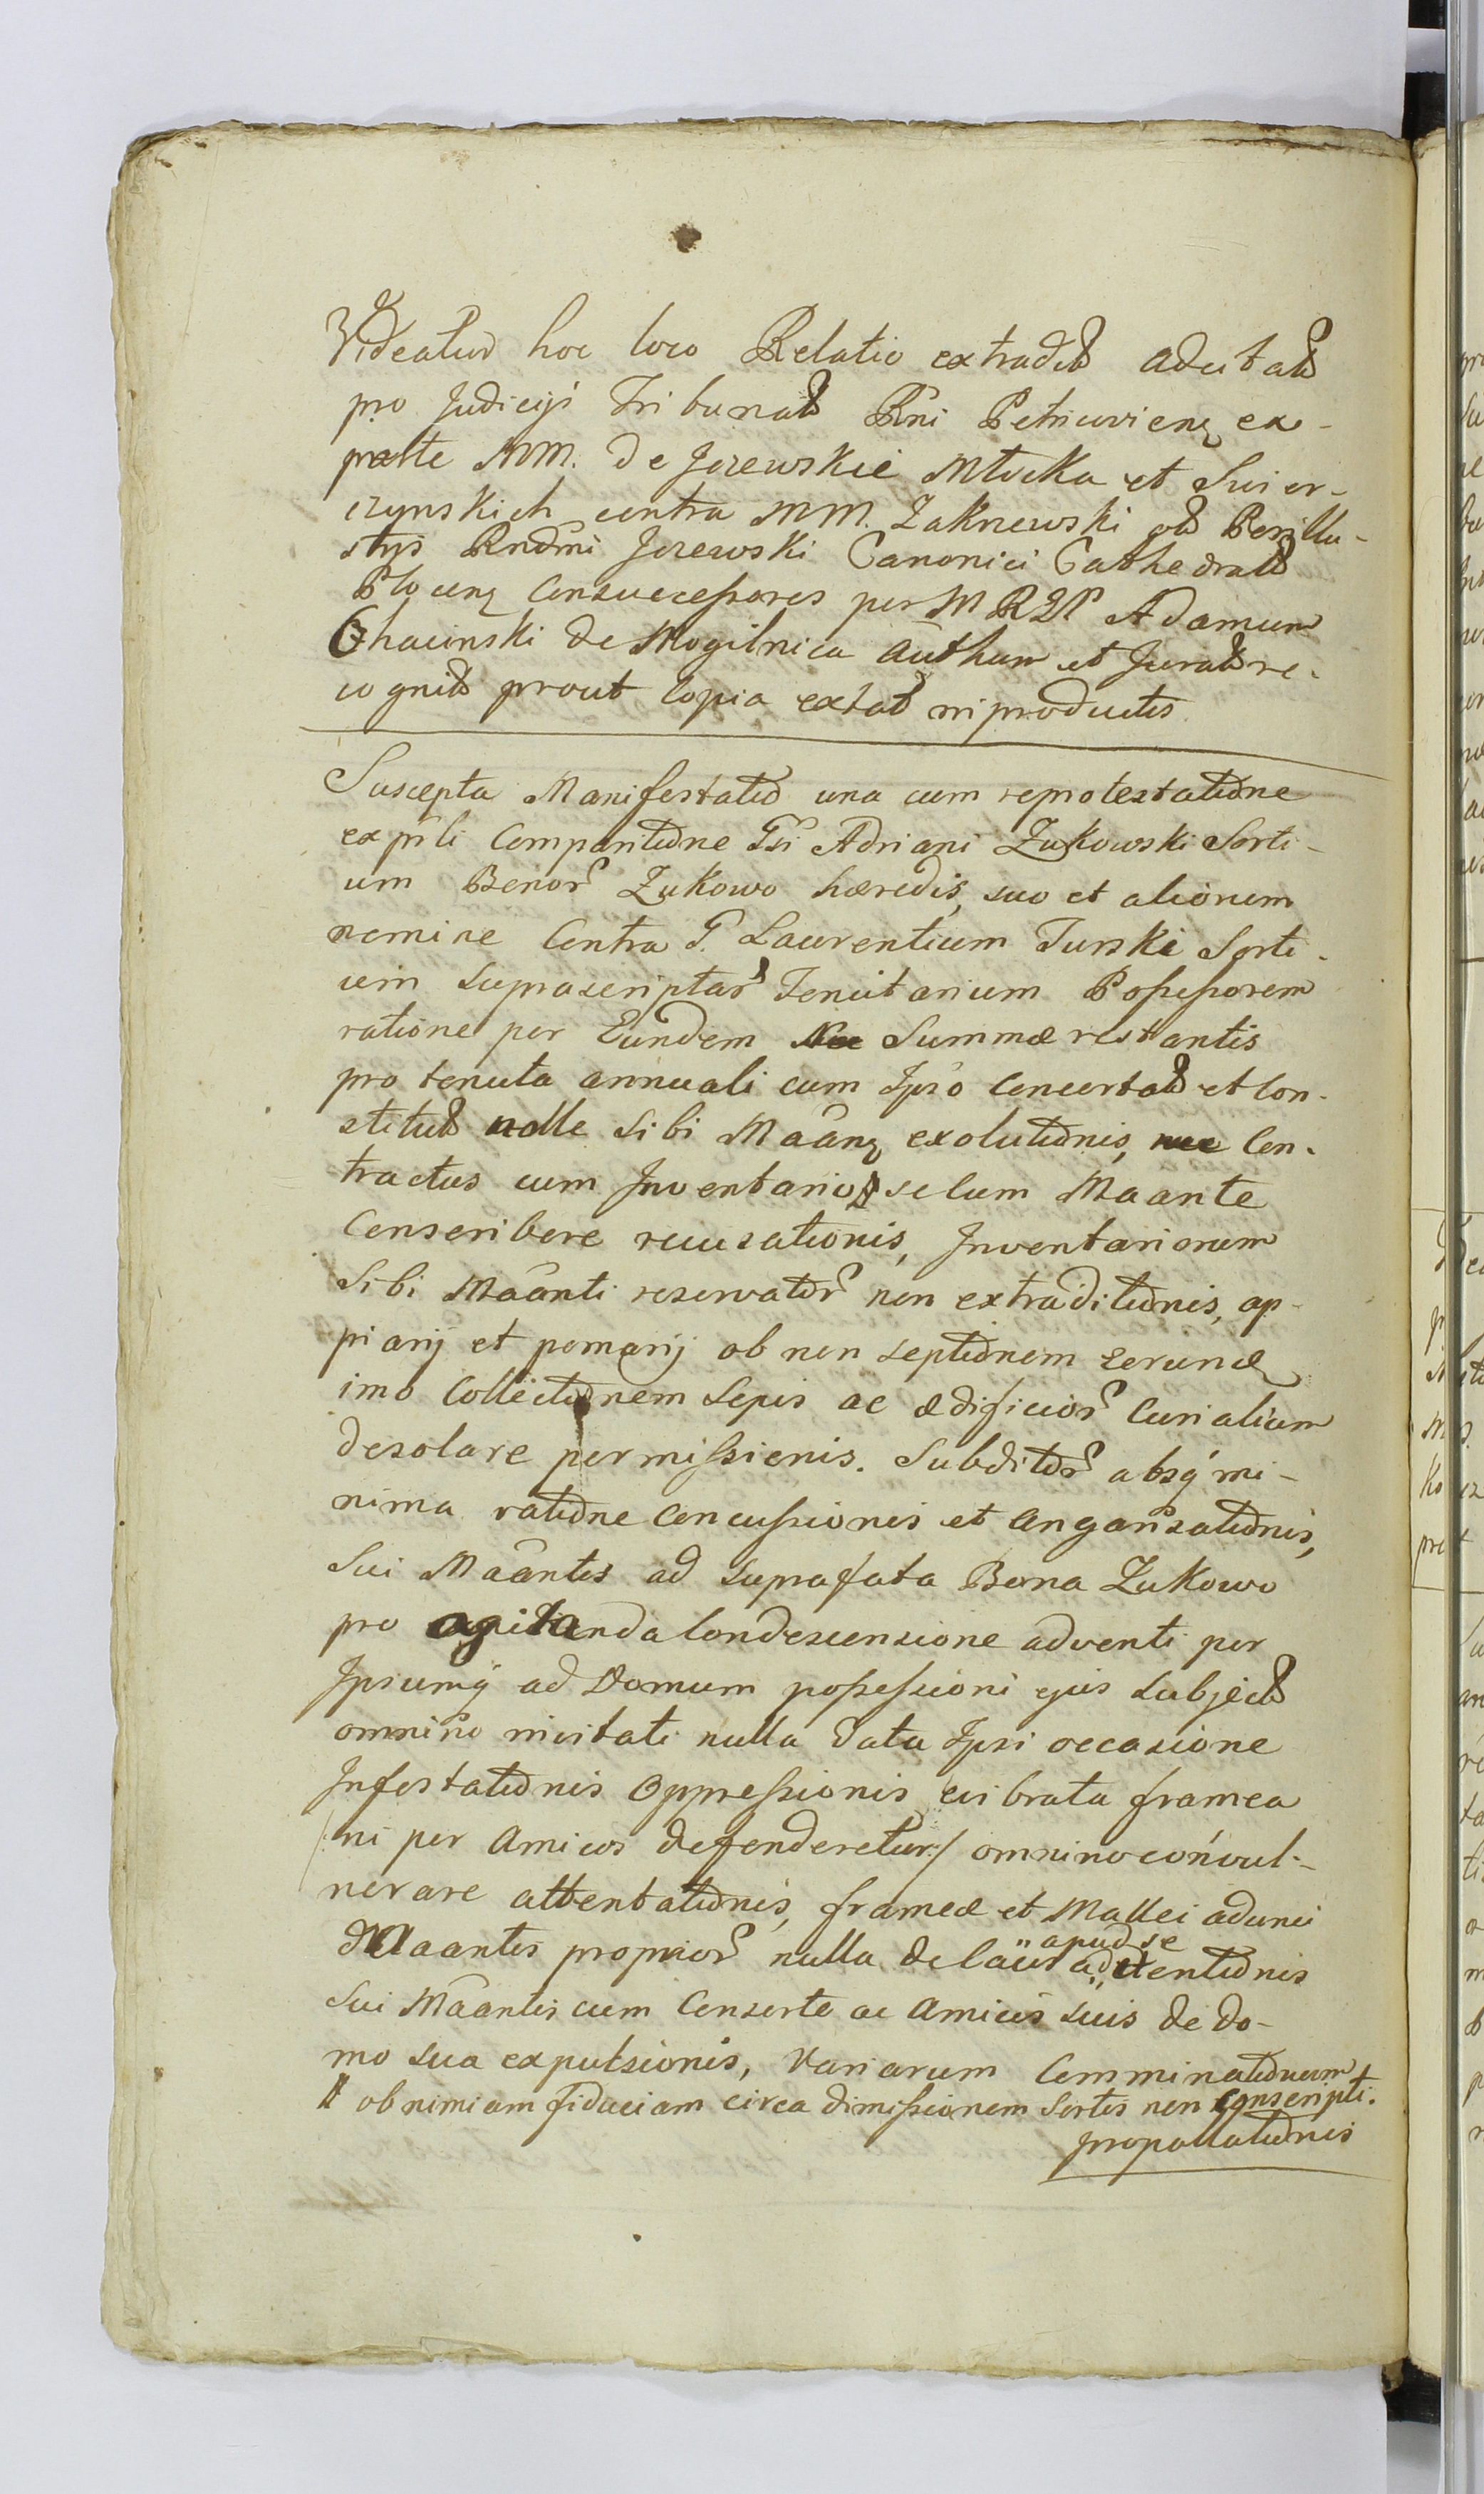 Videatur hoc loco Relatio extradit adcitat
pro Judicijs Tribunal Rni Petricovien ex
parte MM. de Jezewskie Młocka et Swier-
czynskich contra MM. Zakrzewski ob Perillu-
stris Rndmi Jezewski Canonici Cathedral
Plocen Consuccessores per MRDP Adamum
Chacinski de Mogilnica Authen et Jurat re-
cognit prout Copia extat in productis
Suscepta Manifestatio una cum reprotestatione
ex pnli Comparitione Gsi Adriani Zukowski Sorti-
um Bonor Zukowo hæredis, suo et aliorum
nomine Contra G. Laurentium Turski Sorti-
um suprascriptar Tenutarium Possessorem
ratione per Eundem Summæ restantis
pro tenuta annuali cum Ipso concertat et con-
stitut nolle sibi Maanti exolutionis, nec Con-
tractus cum Inventario secum Maante
Conscribere recusationis, Inventariorum
sibi Maanti reservator non extraditionis, ap-
piarij et pomarij ob non septionem
imo Collectionem sepis ac ædificior Curialium
desolare permissionis. Subditor absq mi-
nima ratione concussionis et angarisationis,
Sui Maantis ad suprafata Bona Zukowo
pro agitanda Condescensione adventi per
Ipsumq ad Domum possessioni ejus subject
omnino invitati nulla data Ipsi occasione
Infestationis Oppressionis evibrata framea
/:ni per Amicos defenderetur:/ omnino convul-
nerare attentationis, frameæ et Mallei adunci
Maantis proprior nulla de causa apud se detentionis
Sui Maantis cum Consorte ac Amicis suis de do-
mo sua expulsionis, Variarum Comminationum
# ob nimiam fiduciam circa dimissionem Sortis non conscripti.
propallationis